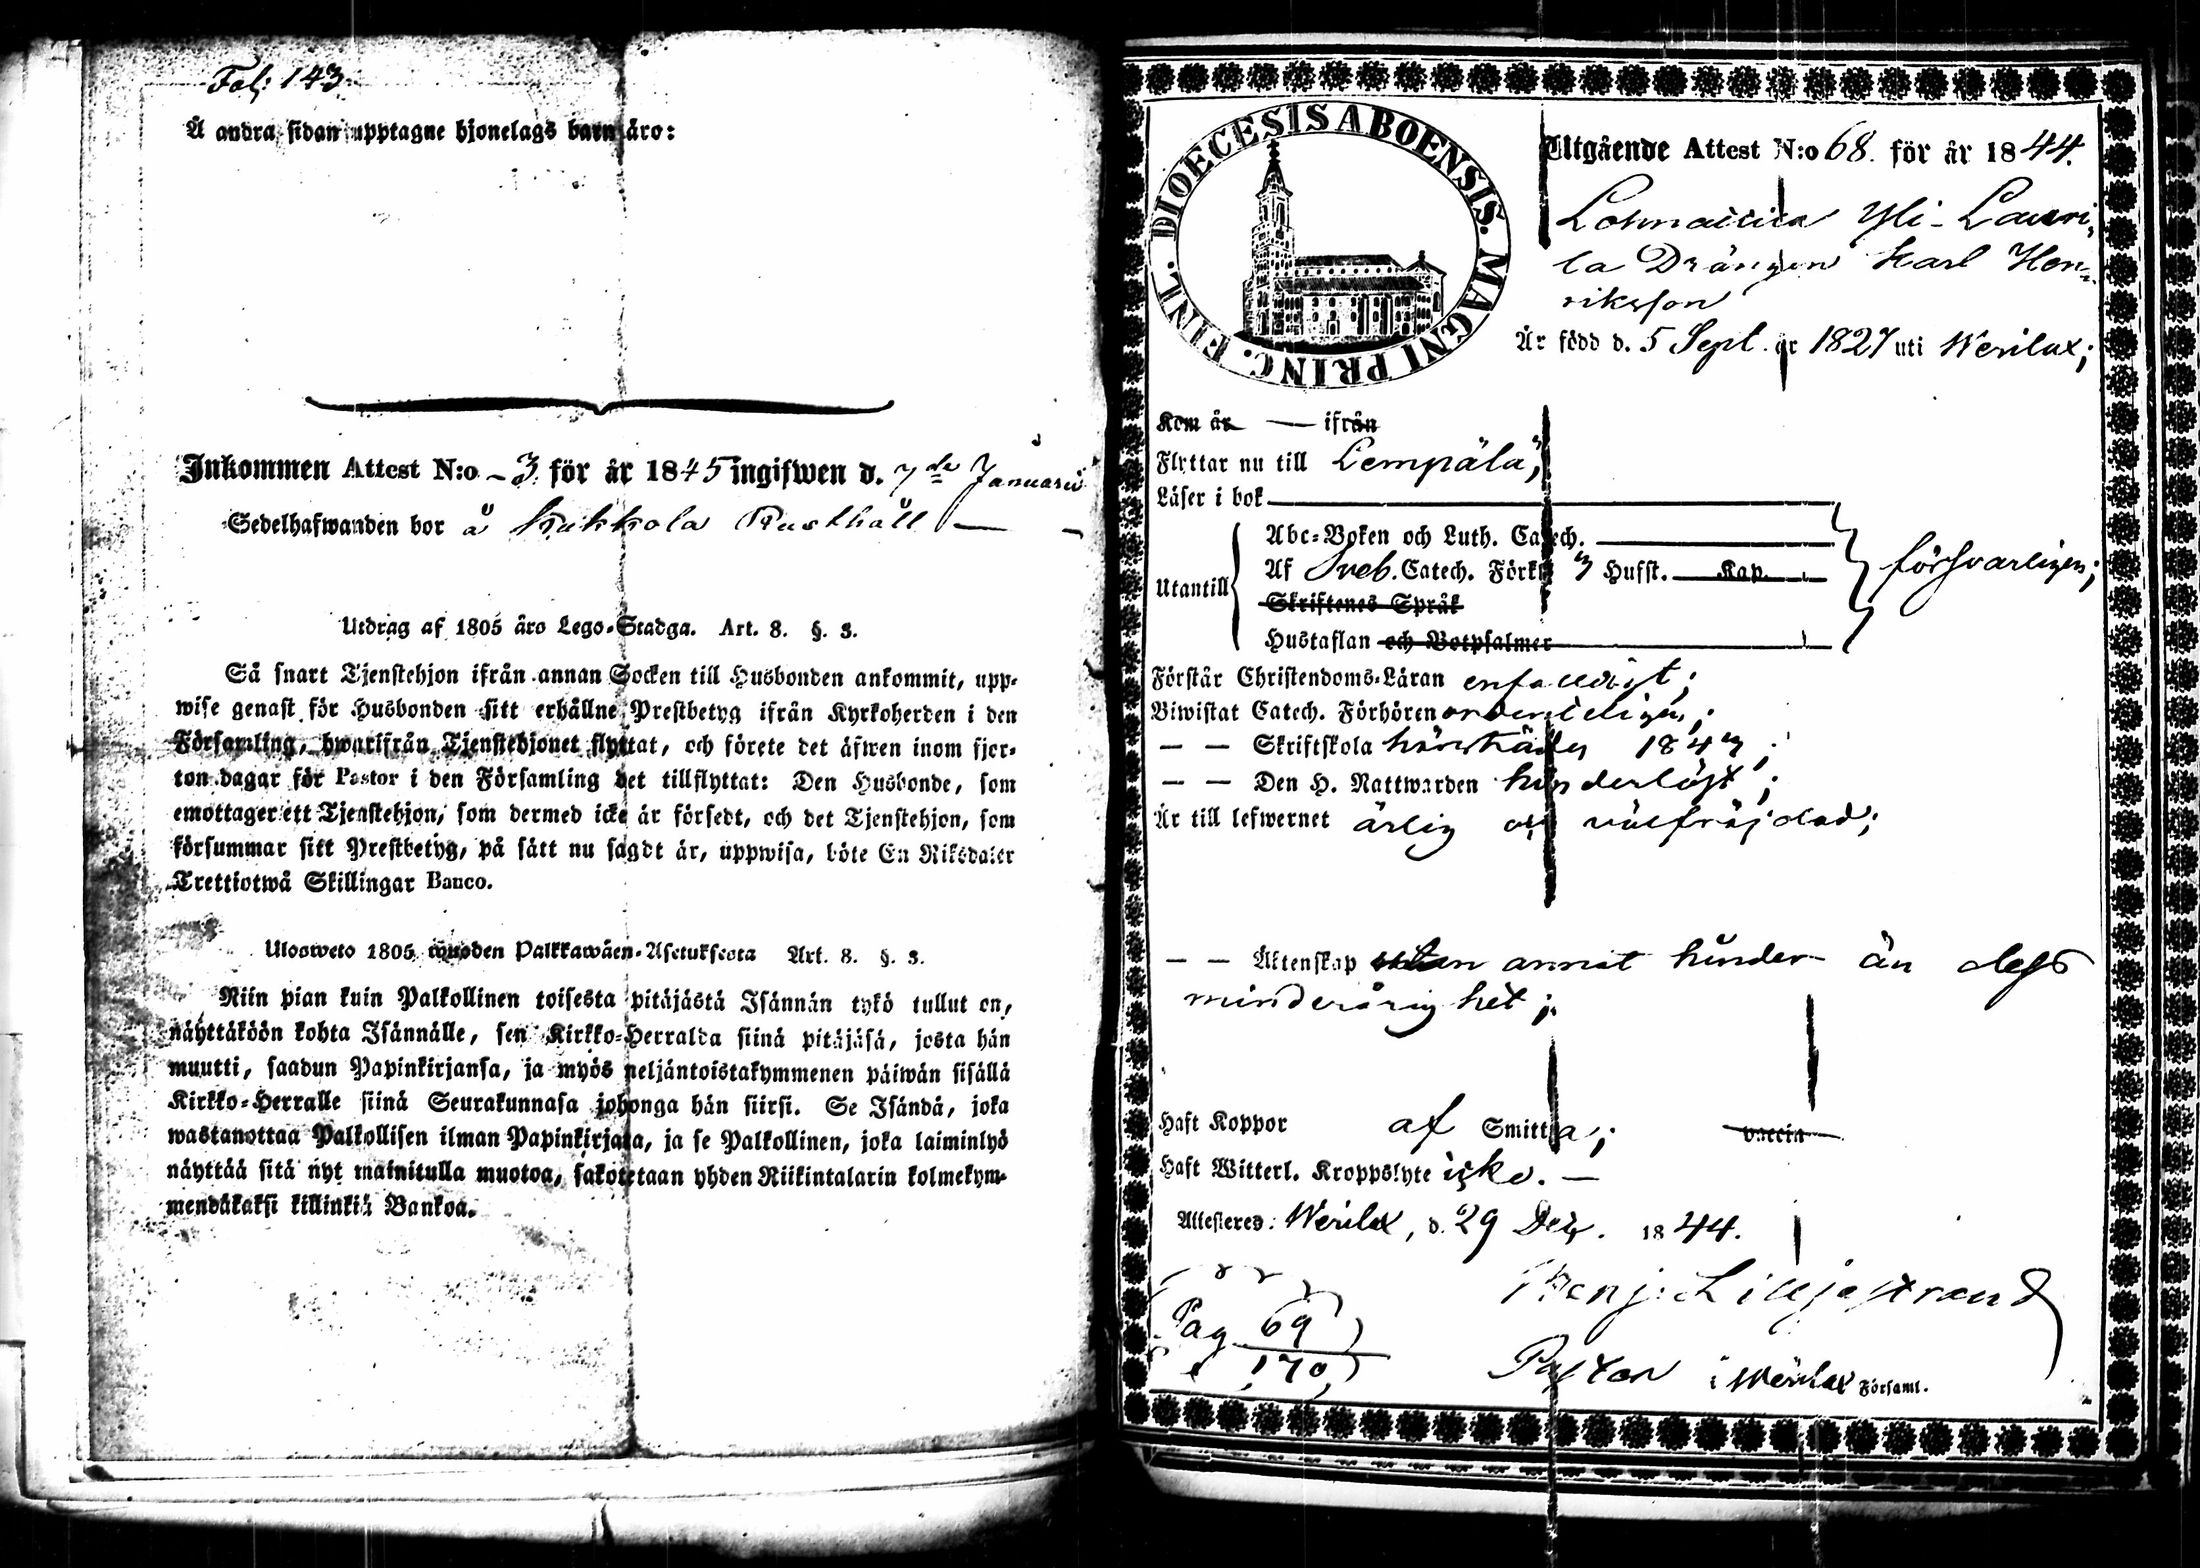 Fol; 143
Å andra sidan upptagne hjonelags barn äro:
Inkommen Attest N:o 3 för år 1845 ingifwen d. 7de Januarii
Sedelhafwanden bor å Kukkola Rusthåll
Utdrag af 1805 års Lego-Stadga. Art. 8. §. 3.
Så snart Tjenstehjon ifrån annan Socken till Husbonden ankommit, upp-
wise genast för Husbonden sitt erhållne Prestbetyg ifrån Kyrkoherden i den
Församling, hwarifrån Tjenstehjonet flyttat, och förete det äfwen inom fjor-
ton dagar för Pastor i den Församling det tillflyttat: Den Husbonde, som
emottager ett Tjenstehjon, som dermed icke är försedt, och det Tjenstehjon, som
försummar sitt Prestbetyg, på sätt nu sagdt är, uppwisa, böte En Riksdaler
Trettiotwå Skillingar Banco.
Ulosweto 1805 wuoden Palkkawäen-Asetuksesta Art. 8. §. 3.
Niin pian kuin Palkollinen toisesta pitäjästä Isännän tykö tullut on,
näyttäköön kohta Isännälle, sen Kirkko-Herralda siinä pitäjäsä, josta hän
muutti, saadun Papinkirjansa, ja myös neljäntoistakymmenen päiwän sisällä
Kirkko-Herralle siinä Seurakunnasa johonga hän siirsi. Se Isändä, joka
wastanottaa Palkollisen ilman Papinkirjata, ja se Palkollinen, joka laiminlyö
näyttää sitä nyt mainitulla muotoa, sakotetaan yhden Riikintalarin kolmekym-
mendäkaksi killinkiä Bankoa.
DIOECESIS ABOENSIS. MAGNI PRINC. FINL.
Utgående Attest N:o 68. för år 1844.
Yli-Lauri-
la Drängen Karl Hen-
riksson
Är född d. 5 Sept. år 1827 uti Wesilax;
Kom år — ifrån
Flyttar nu till Lempäla;
Läser i bok
Abc-Boken och Luth. Catech.
Utantill Af Sveb. Catech. Förkl. 3 Hufst. Kap. försvarligen;
Skriftenes Språk
Hustaflan och Botpsalmer
Förstår Christendoms-Läran enfaldigt;
Biwistat Catech. Förhören ordenteligen;
— — Skriftskola 1843;
— — Den H. Nattwarden hinderlöst;
Är till lefwernet ärlig och välfräjdad;
— — Äktenskap utan annat hinder än dess
minderårighet;
Haft Koppor af Smitta; vaccin
Haft Witterl. Kroppslyte icke. —
Attesteres: Wesilax, d. 29 Dec. 1844.
Benj: Liljestrand
Pag 69
170
Pastor i Wesilax Församl.